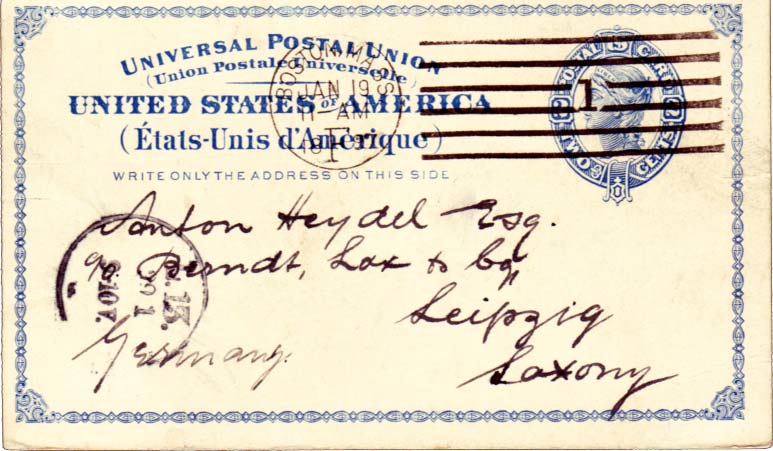 UNIVERSAL POSTAL UNION
(Union Postale Universelle)
UNITED STATES OF AMERICA
(États-Unis d'Amérique)
WRITE ONLY THE ADDRESS ON THIS SIDE
BOSTON, MASS.
JAN 19
11-AM
F
1
POSTAL CARD
TWO CENTS
2
Anton Heydel Esq.
c/o Berndt, Lax & Co
Leipzig
Saxony
Germany.